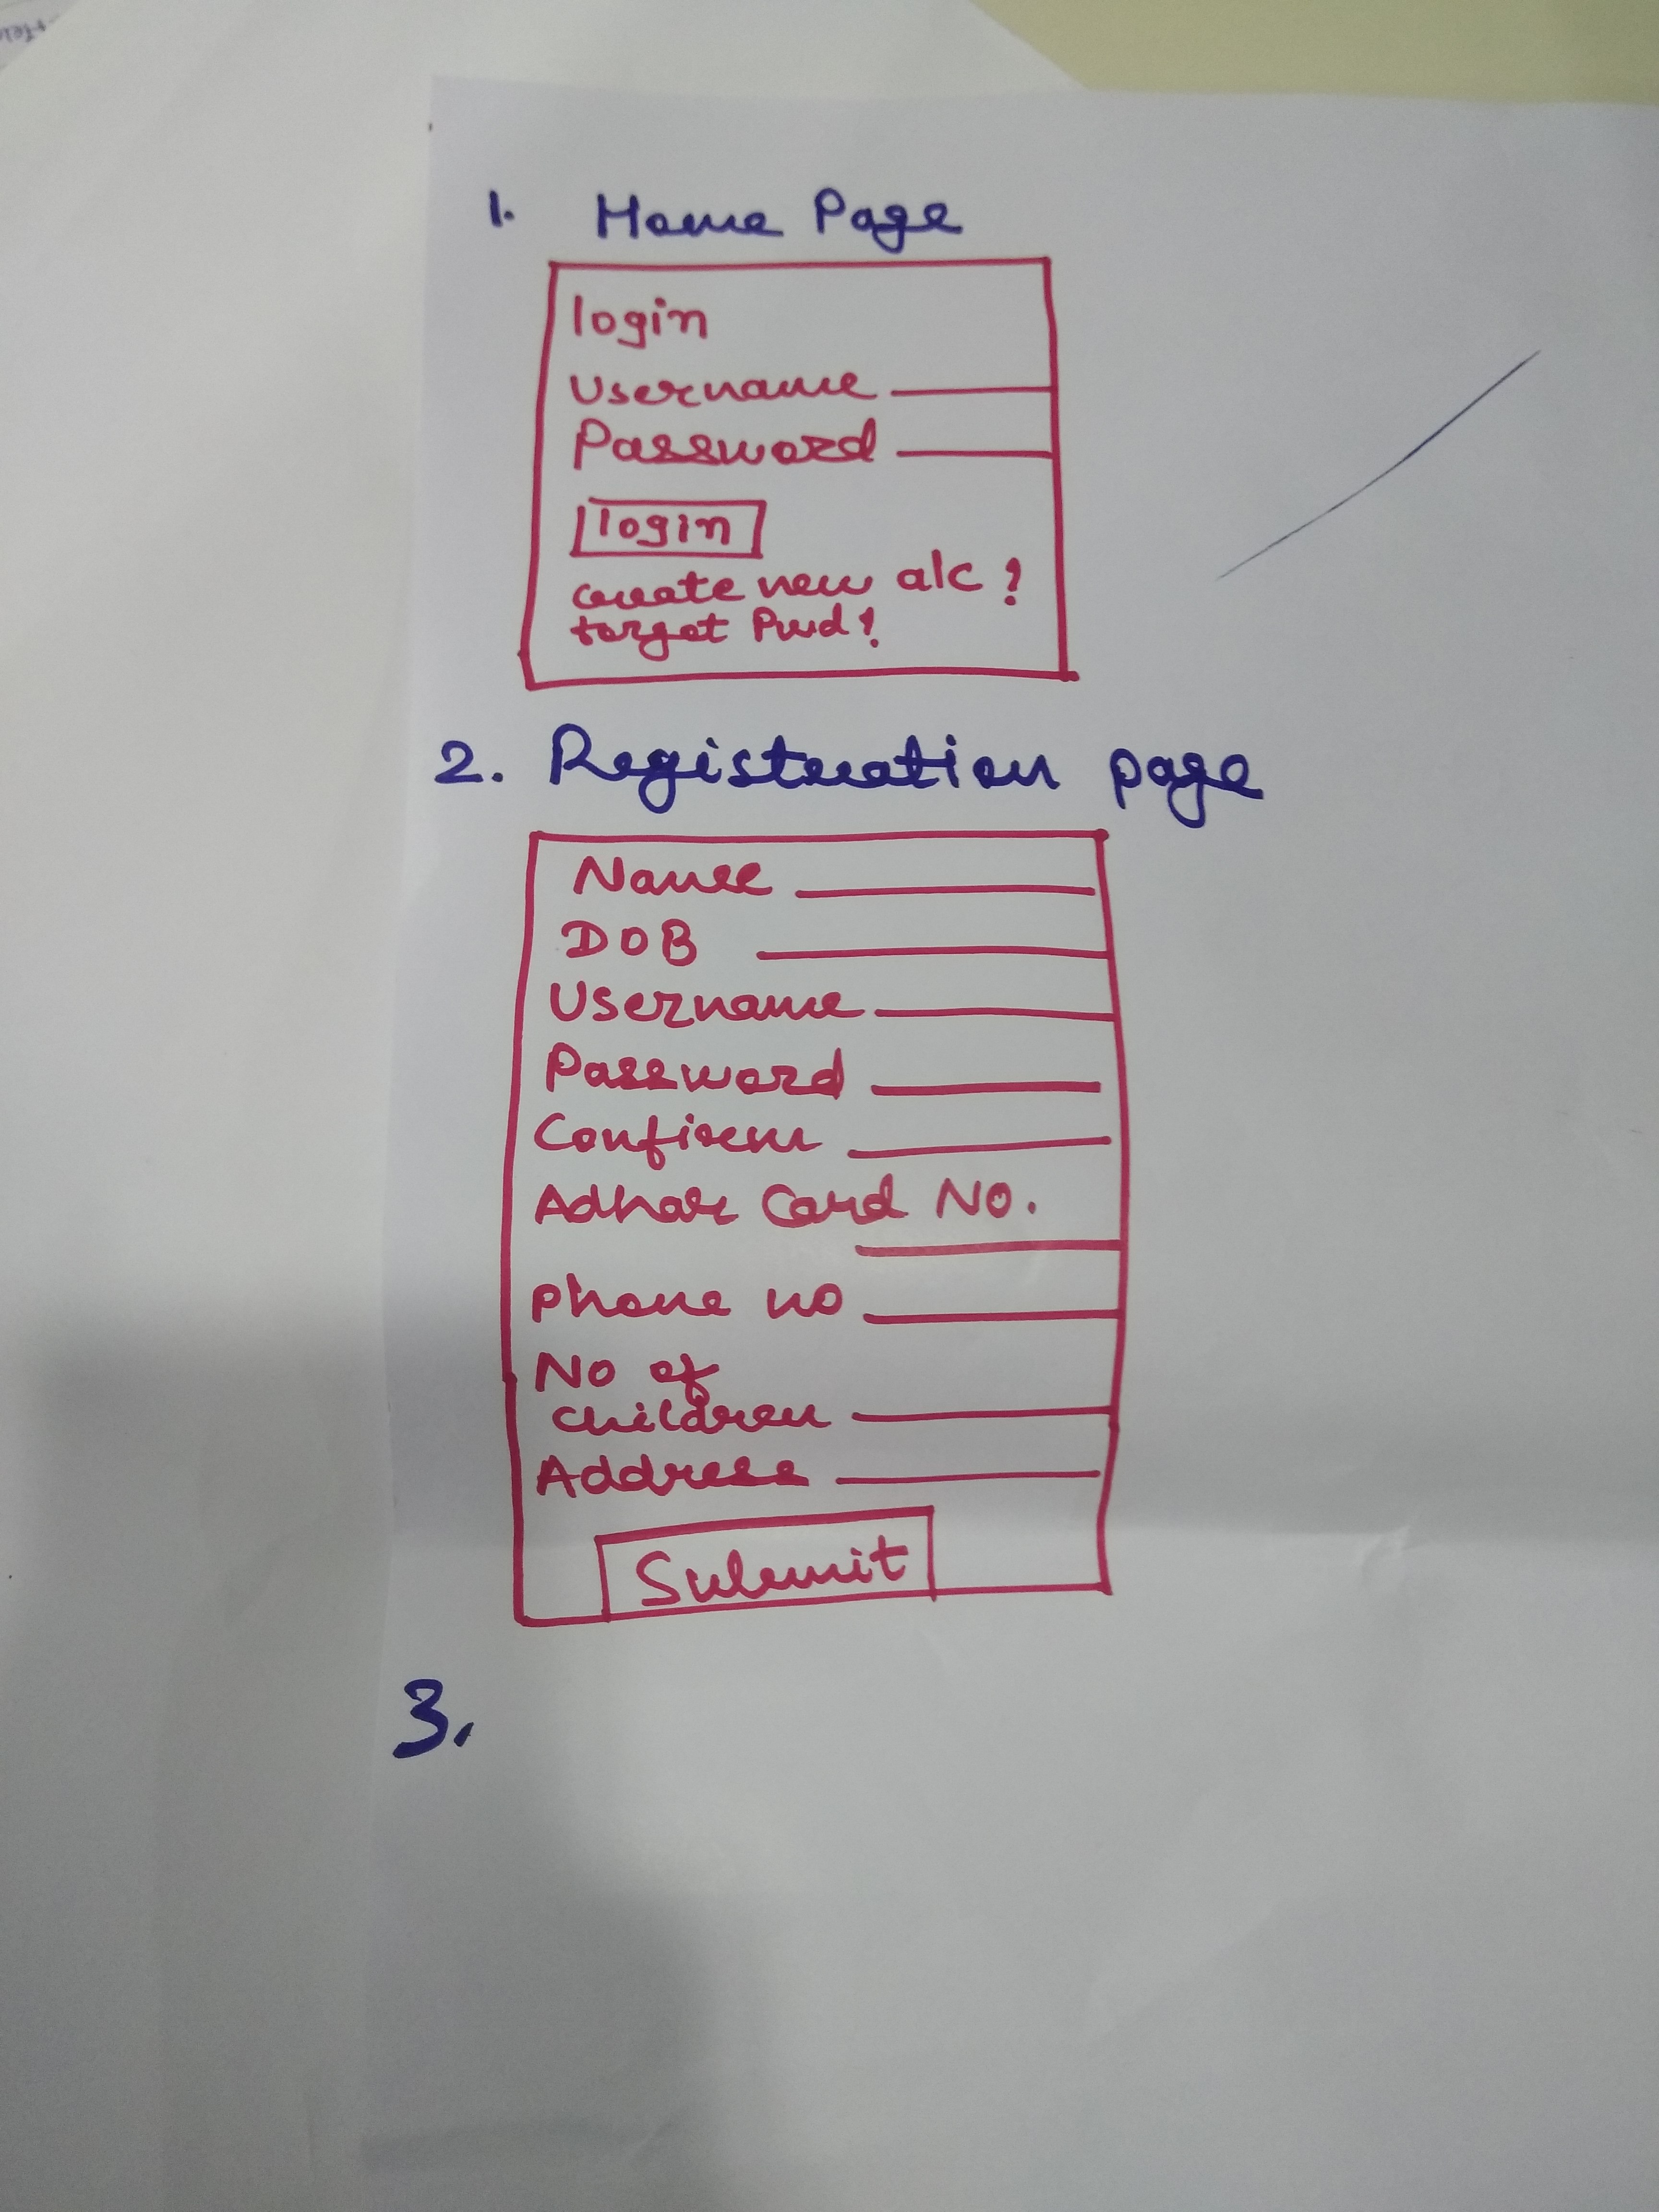 1. Home Page
login
Username
Password
login
create new a/c ?
forget Pwd ?
2. Registration page
Name
DOB
Username
Password
Confirm
Adhar Card NO.
phone no
No of
children
Address
Submit
3.